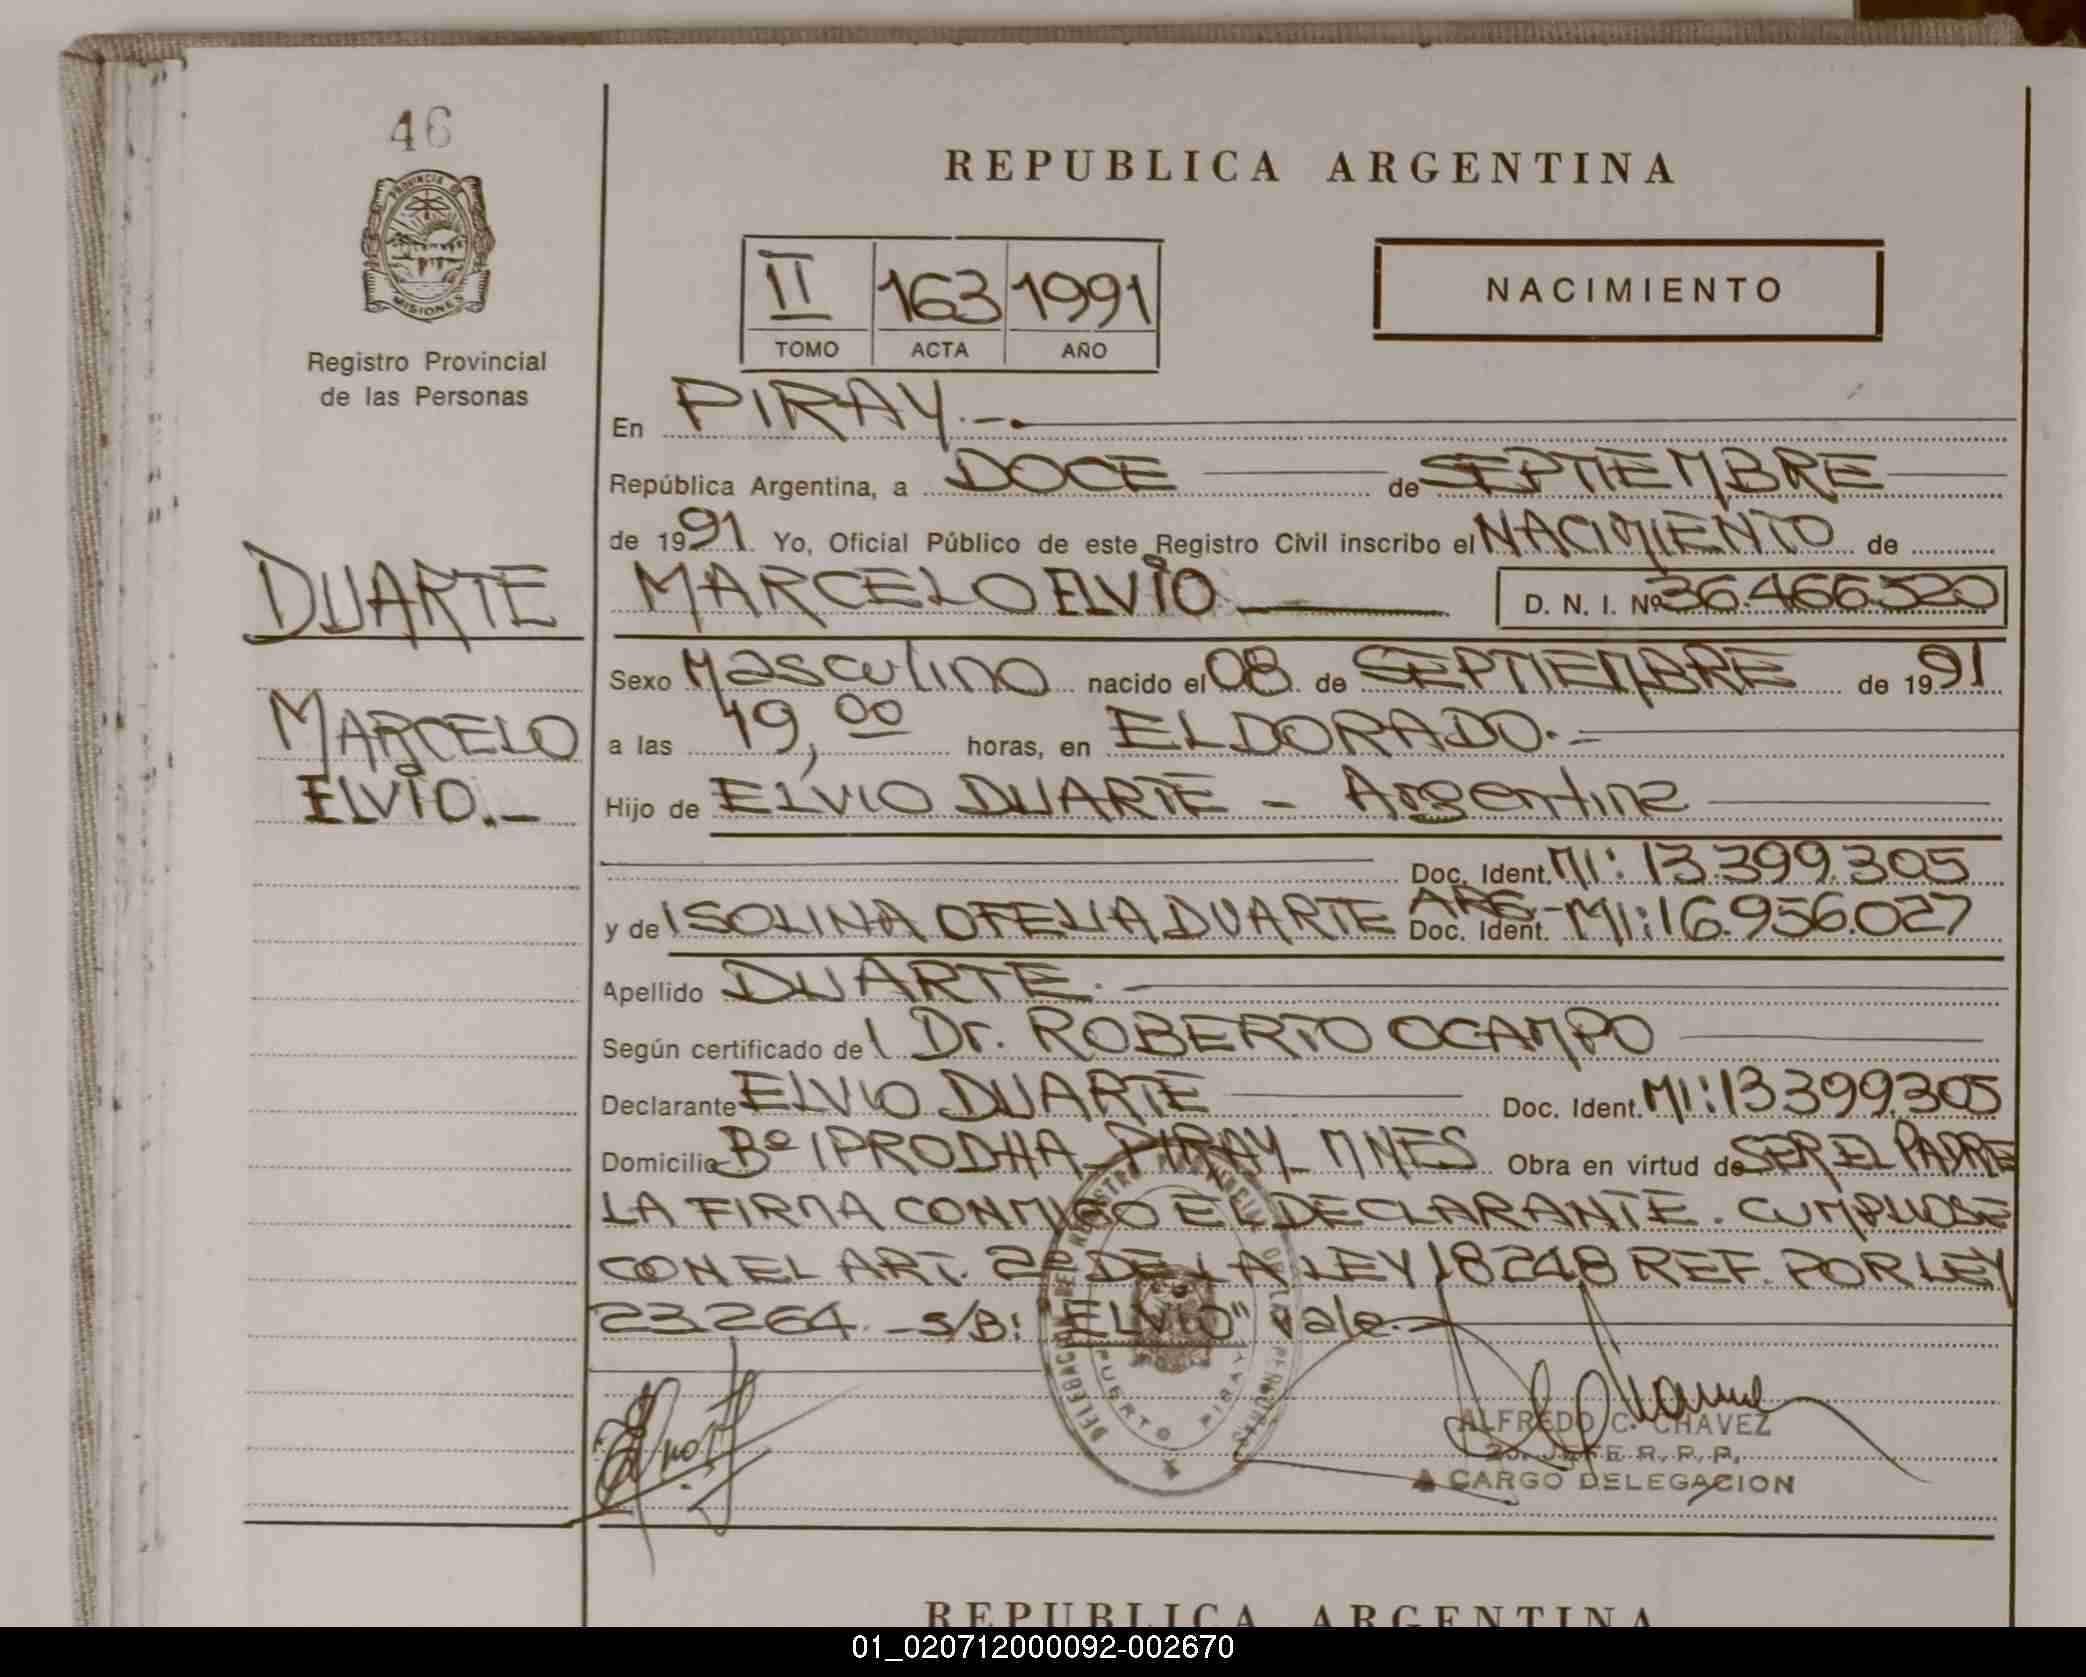 46
PROVINCIA DE
MISIONES
Registro Provincial
de las Personas
DUARTE
MARCELO
ELVIO.-
REPUBLICA ARGENTINA
II 163 1991
TOMO ACTA AÑO
NACIMIENTO
En PIRAY.-
República Argentina, a DOCE de SEPTIEMBRE
de 1991. Yo, Oficial Público de este Registro Civil inscribo el NACIMIENTO de
MARCELO ELVIO D. N. I. Nº 36.466.520
Sexo Masculino nacido el 08 de SEPTIEMBRE de 1991
a las 19,00 horas, en ELDORADO.-
Hijo de ELVIO DUARTE - Argentina
Doc. Ident. MI: 13.399.305
y de ISOLINA OFELIA DUARTE ARG.- Doc. Ident. MI: 16.956.027
Apellido DUARTE.
Según certificado de l Dr. ROBERTO OCAMPO
Declarante ELVIO DUARTE Doc. Ident. MI: 13399.305
Domicilio Bº IPRODHA PIRAY MNES Obra en virtud de SER EL PADRE
LA FIRMA CONMIGO EL DECLARANTE. CUMPLIOSE
CON EL ART. 2º DE LA LEY 18248 REF. POR LEY
23.264. -S/B: "ELVIO" vale.-
PUERTO PIRAY
ALFREDO C. CHAVEZ
JEFE R. P. P.
A CARGO DELEGACION
REPUBLICA ARGENTINA
01_020712000092-002670